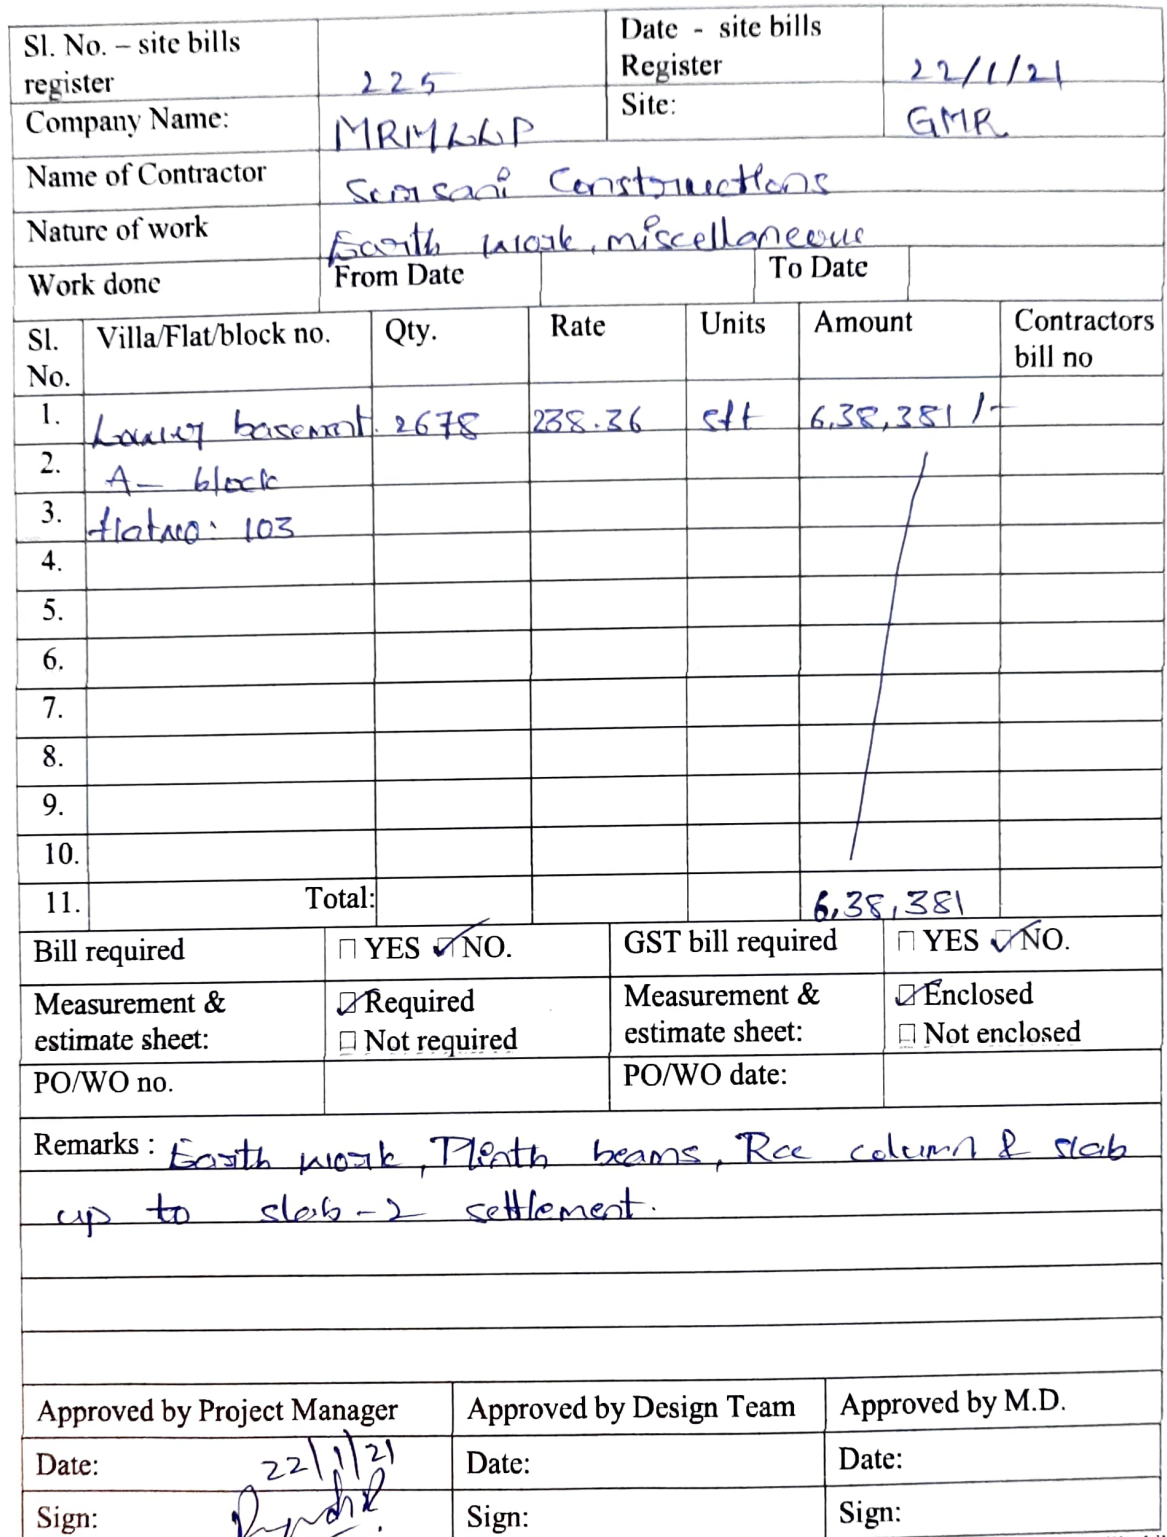 Sl. No. – site bills register 225 Date - site bills Register 22/1/21
Company Name: MRMLLP Site: GMR
Name of Contractor Sarsani Constructions
Nature of work Earth work, miscellaneous
Work done From Date To Date
Sl. No. Villa/Flat/block no. Qty. Rate Units Amount Contractors bill no
1. Lower basement 2678 238.36 sft 6,38,381 /-
2. A- block
3. flat no: 103
4.
5.
6.
7.
8.
9.
10.
11. Total: 6,38,381
Bill required YES NO. GST bill required YES NO.
Measurement & estimate sheet: Required Not required Measurement & estimate sheet: Enclosed Not enclosed
PO/WO no. PO/WO date:
Remarks : Earth work, Plinth beams, Rcc column & slab
up to slab-2 settlement.
Approved by Project Manager Approved by Design Team Approved by M.D.
Date: 22/1/21 Date: Date:
Sign: Sign: Sign: